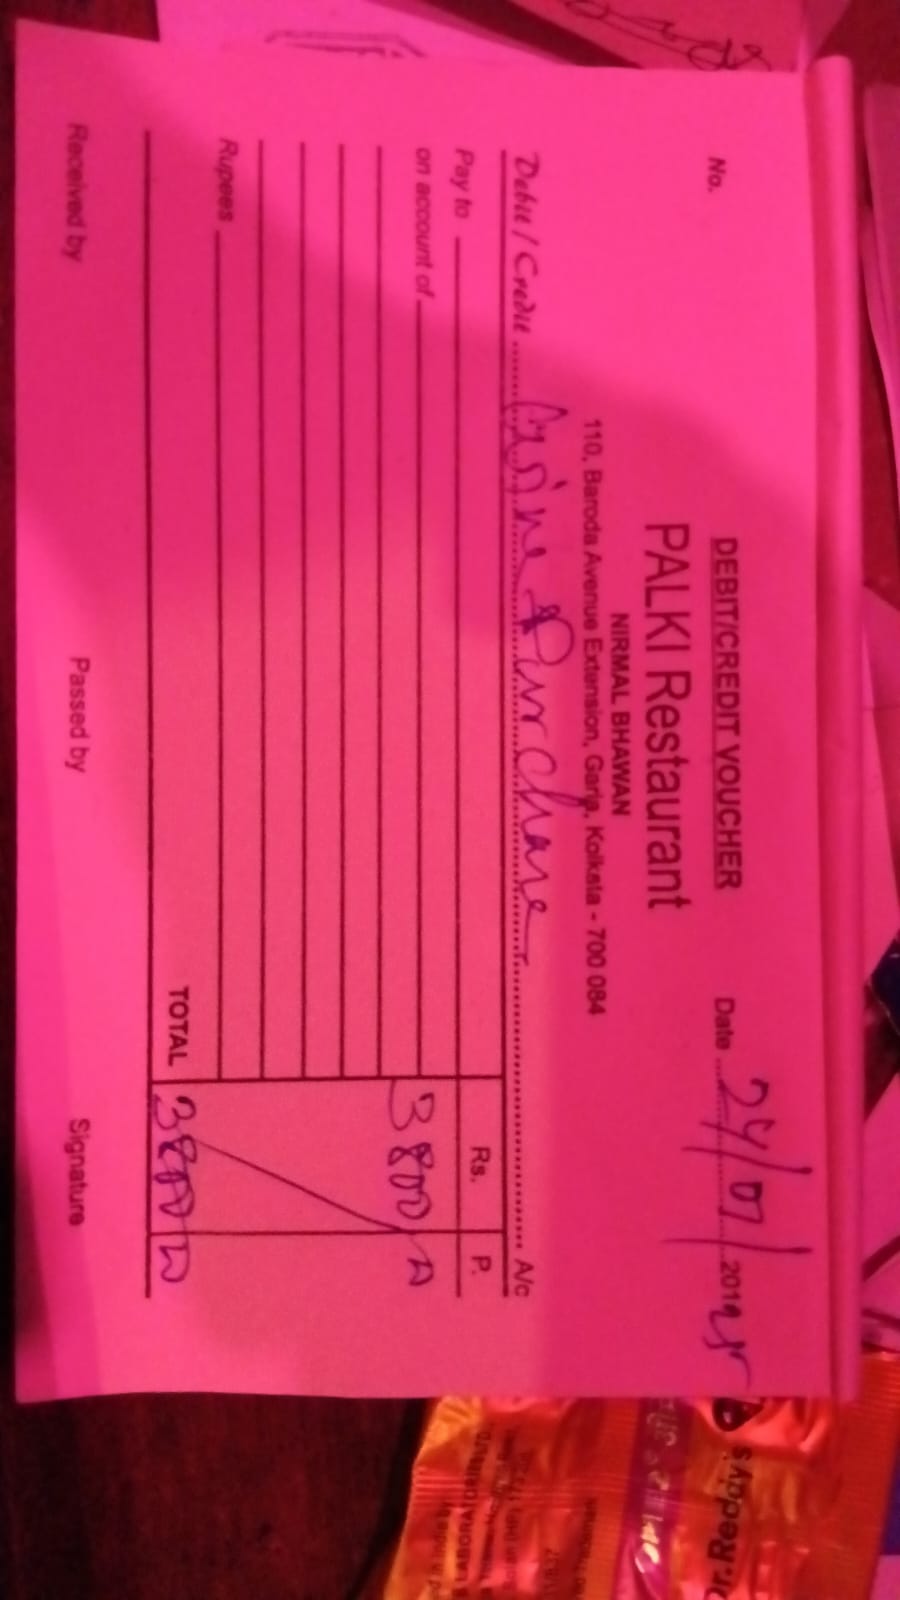 DEBIT/CREDIT VOUCHER
No.
Date 24/07/201925
PALKI Restaurant
NIRMAL BHAWAN
110, Baroda Avenue Extension, Garia, Kolkata - 700 084
Debit / Credit Purchase A/c
Pay to Rs. P.
on account of 3800
Rupees
TOTAL 3800
Received by Passed by Signature
Dr.Reddy's